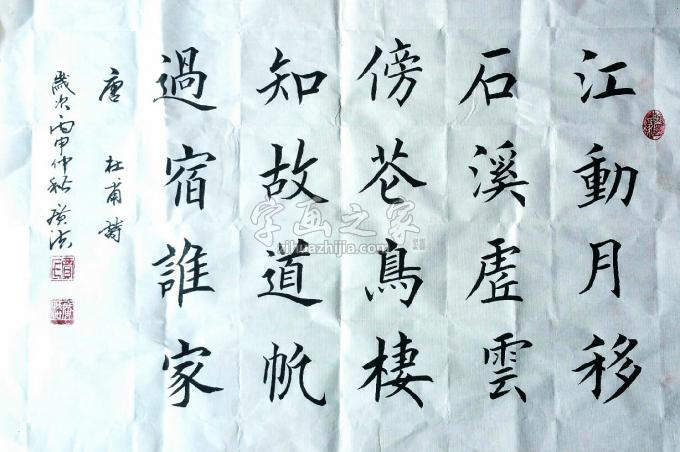 江動月移
石溪虛雲
傍花鳥棲
知故道帆
過宿誰家
唐 杜甫 詩
歲次丙申仲秋
字画之家
zihuazhijia.com